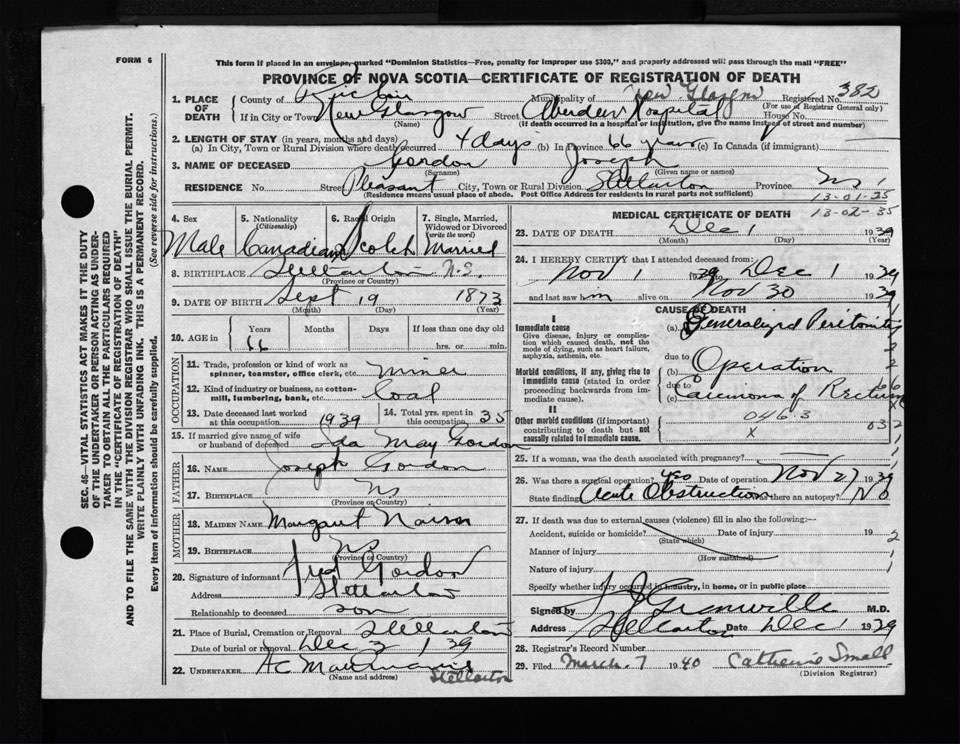 FORM 6
This form if placed in an envelope, marked "Dominion Statistics—Free, penalty for improper use $300," and properly addressed will pass through the mail "FREE"
PROVINCE OF NOVA SCOTIA—CERTIFICATE OF REGISTRATION OF DEATH
SEC. 46—VITAL STATISTICS ACT MAKES IT THE DUTY
OF THE UNDERTAKER OR PERSON ACTING AS UNDER-
TAKER TO OBTAIN ALL THE PARTICULARS REQUIRED
IN THE "CERTIFICATE OF REGISTRATION OF DEATH"
AND TO FILE THE SAME WITH THE DIVISION REGISTRAR WHO SHALL ISSUE THE BURIAL PERMIT.
WRITE PLAINLY WITH UNFADING INK. THIS IS A PERMANENT RECORD.
Every item of information should be carefully supplied. (See reverse side for instructions.)
1. PLACE OF DEATH County of Pictou Municipality of New Glasgow Registered No. 382
(For use of Registrar General only)
If in City or Town New Glasgow Street Aberdeen Hospital House No.
(Name) (If death occurred in a hospital or institution, give the name instead of street and number)
2. LENGTH OF STAY (in years, months and days)
(a) In City, Town or Rural Division where death occurred 4 days (b) In Province 66 years (c) In Canada (if immigrant) —
3. NAME OF DECEASED Gordon Joseph
(Surname) (Given name or names)
RESIDENCE No. Street Pleasant City, Town or Rural Division Stellarton Province NS
(Residence means usual place of abode. Post Office Address for residents in rural parts not sufficient)
13-01-35
13-02-35
4. Sex 5. Nationality (Citizenship) 6. Racial Origin 7. Single, Married, Widowed or Divorced (write the word)
Male Canadian Scotch Married
8. BIRTHPLACE Stellarton N.S.
(Province or Country)
9. DATE OF BIRTH Sept 19 1873
(Month) (Day) (Year)
10. AGE in Years Months Days If less than one day old
66 hrs. or min.
OCCUPATION
11. Trade, profession or kind of work as spinner, teamster, office clerk, etc. Miner
12. Kind of industry or business, as cotton-mill, lumbering, bank, etc. Coal
13. Date deceased last worked at this occupation 1939 14. Total yrs. spent in this occupation 35
15. If married give name of wife or husband of deceased Ida May Gordon
FATHER
16. NAME Joseph Gordon
17. BIRTHPLACE NS
(Province or Country)
MOTHER
18. MAIDEN NAME Margaret Nairn
19. BIRTHPLACE NS
(Province or Country)
20. Signature of informant Fred Gordon
Address Stellarton
Relationship to deceased son
21. Place of Burial, Cremation or Removal Stellarton
Date of burial or removal Dec 3 1939
22. UNDERTAKER
(Name and address) Stellarton
MEDICAL CERTIFICATE OF DEATH
23. DATE OF DEATH Dec 1 1939
(Month) (Day) (Year)
24. I HEREBY CERTIFY that I attended deceased from:
Nov 1 1939 to Dec 1 1939
and last saw him alive on Nov 30 1939
CAUSE OF DEATH
I
Immediate cause
Give disease, injury or complication which caused death, not the mode of dying, such as heart failure, asphyxia, asthenia, etc.
(a) Generalized Peritonitis
due to
Morbid conditions, if any, giving rise to immediate cause (stated in order proceeding backwards from immediate cause).
(b) Operation
due to
(c) Carcinoma of Rectum
II
Other morbid conditions (if important) contributing to death but not causally related to immediate cause.
046.3
X
25. If a woman, was the death associated with pregnancy?
26. Was there a surgical operation? yes Date of operation Nov 27 1939
State findings Acute Obstruction Was there an autopsy? No
27. If death was due to external causes (violence) fill in also the following:—
Accident, suicide or homicide? Date of injury 193
(State which)
Manner of injury
(How sustained)
Nature of injury
Specify whether injury occurred in industry, in home, or in public place
Signed by Granville M.D.
Address Stellarton Date Dec 1 1939
28. Registrar's Record Number
29. Filed March 7 1940 Catherine Small
(Division Registrar)